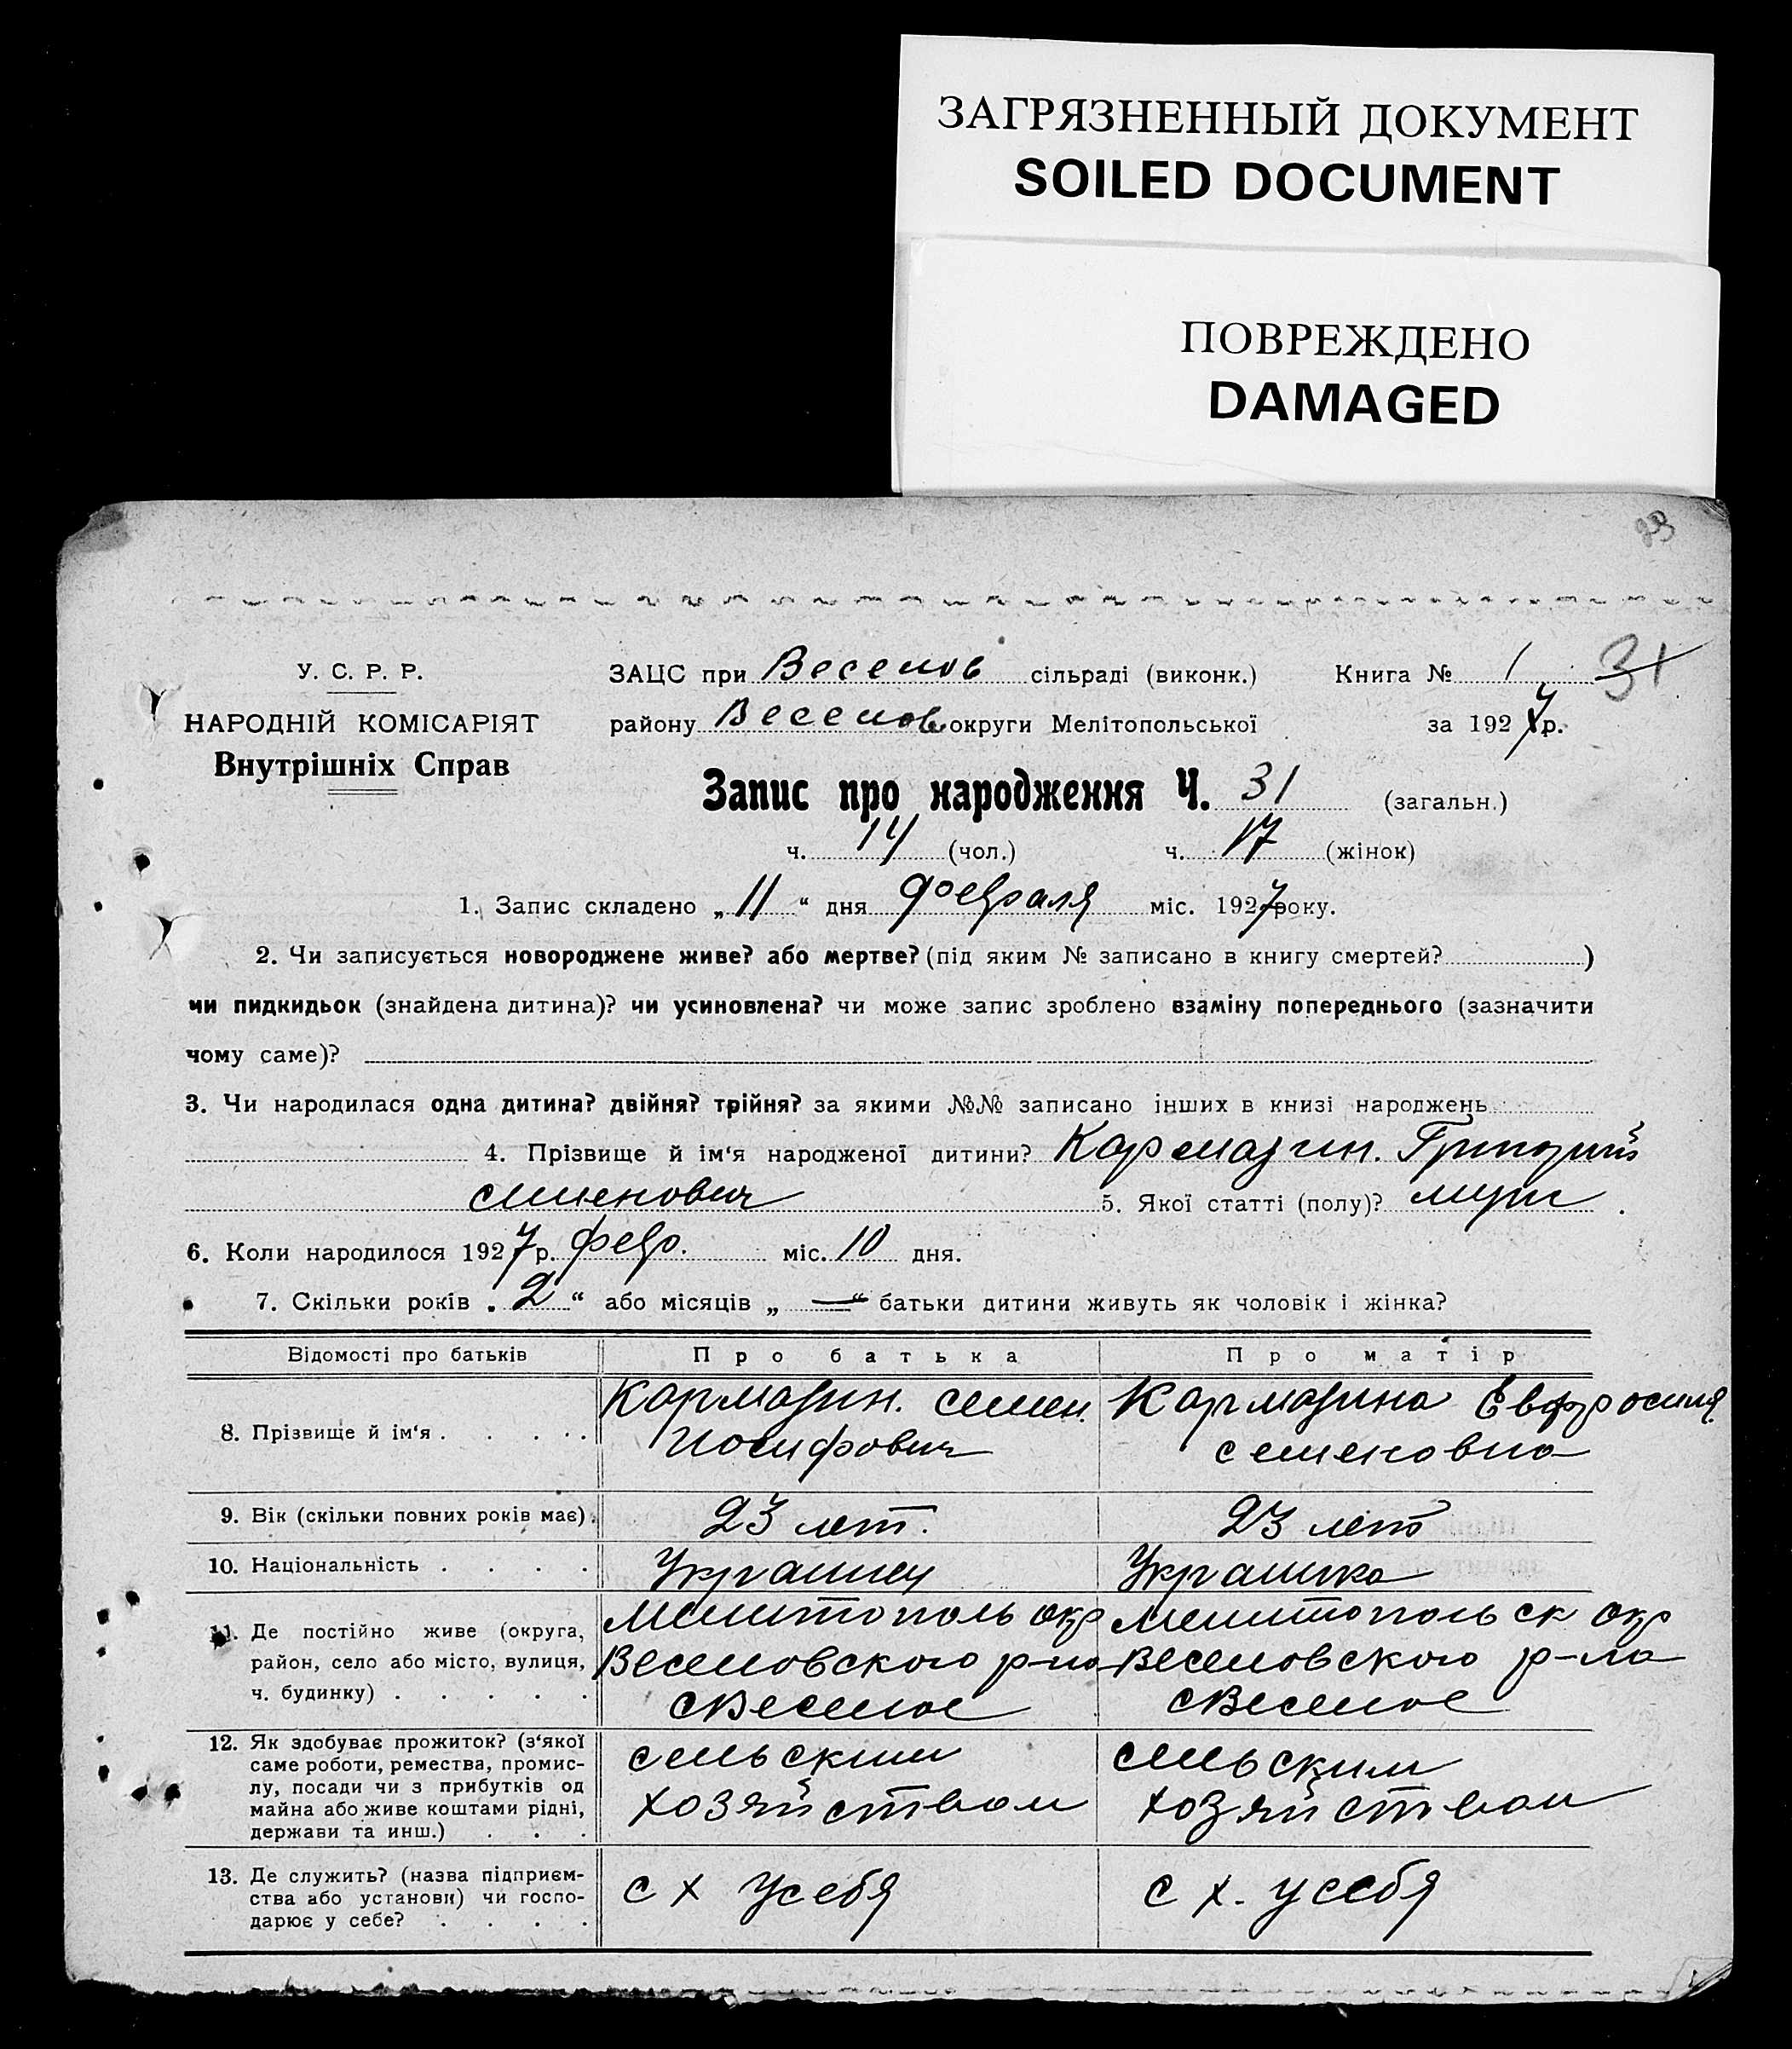 ЗАГРЯЗНЕННЫЙ ДОКУМЕНТ
SOILED DOCUMENT
ПОВРЕЖДЕНО
DAMAGED
У. С. Р. Р.
НАРОДНІЙ КОМІСАРІЯТ
Внутрішніх Справ
ЗАЦС при Веселов сільраді (виконк.) Книга № 1 31
району Веселов округи Мелітопольської за 1927 р.
Запис про народження Ч. 31 (загальн.)
ч. 14 (чол.) ч. 17 (жінок)
1. Запис складено „11“ дня февраля міс. 1927 року.
2. Чи записується новороджене живе? або мертве? (під яким № записано в книгу смертей? )
чи пидкидьок (знайдена дитина)? чи усиновлена? чи може запис зроблено взаміну попереднього (зазначити
чому саме)?
3. Чи народилася одна дитина? двійня? трійня? за якими №№ записано інших в книзі народжень
4. Прізвище й ім‘я народженої дитини? Кармазин. Григорий
Семенович 5. Якої статті (полу)? муж
6. Коли народилося 1927 р. февр. міс. 10 дня.
7. Скільки років „2“ або місяців „—“ батьки дитини живуть як чоловік і жінка?
Відомості про батьків Про батька Про матір
8. Прізвище й ім‘я
Кармазин. Семен.
Иосифович
Кармазина Евфросиня
Семеновна
9. Вік (скільки повних років має)
23 лет.
23 лет
10. Національність
Украинец
Украинка
11. Де постійно живе (округа,
район, село або місто, вулиця,
ч. будинку)
Мелитополь окр
Веселовского р-на
с Веселое
Мелитопольск окр
Веселовского р-на
с Веселое
12. Як здобуває прожиток? (з‘якої
саме роботи, ремества, промис-
лу, посади чи з прибутків од
майна або живе коштами рідні,
держави та инш.)
сельским
хозяйством
сельским
хозяйством
13. Де служить? (назва підприєм-
ства або установи) чи госпо-
дарює у себе?
с х у себя
с х. у себя